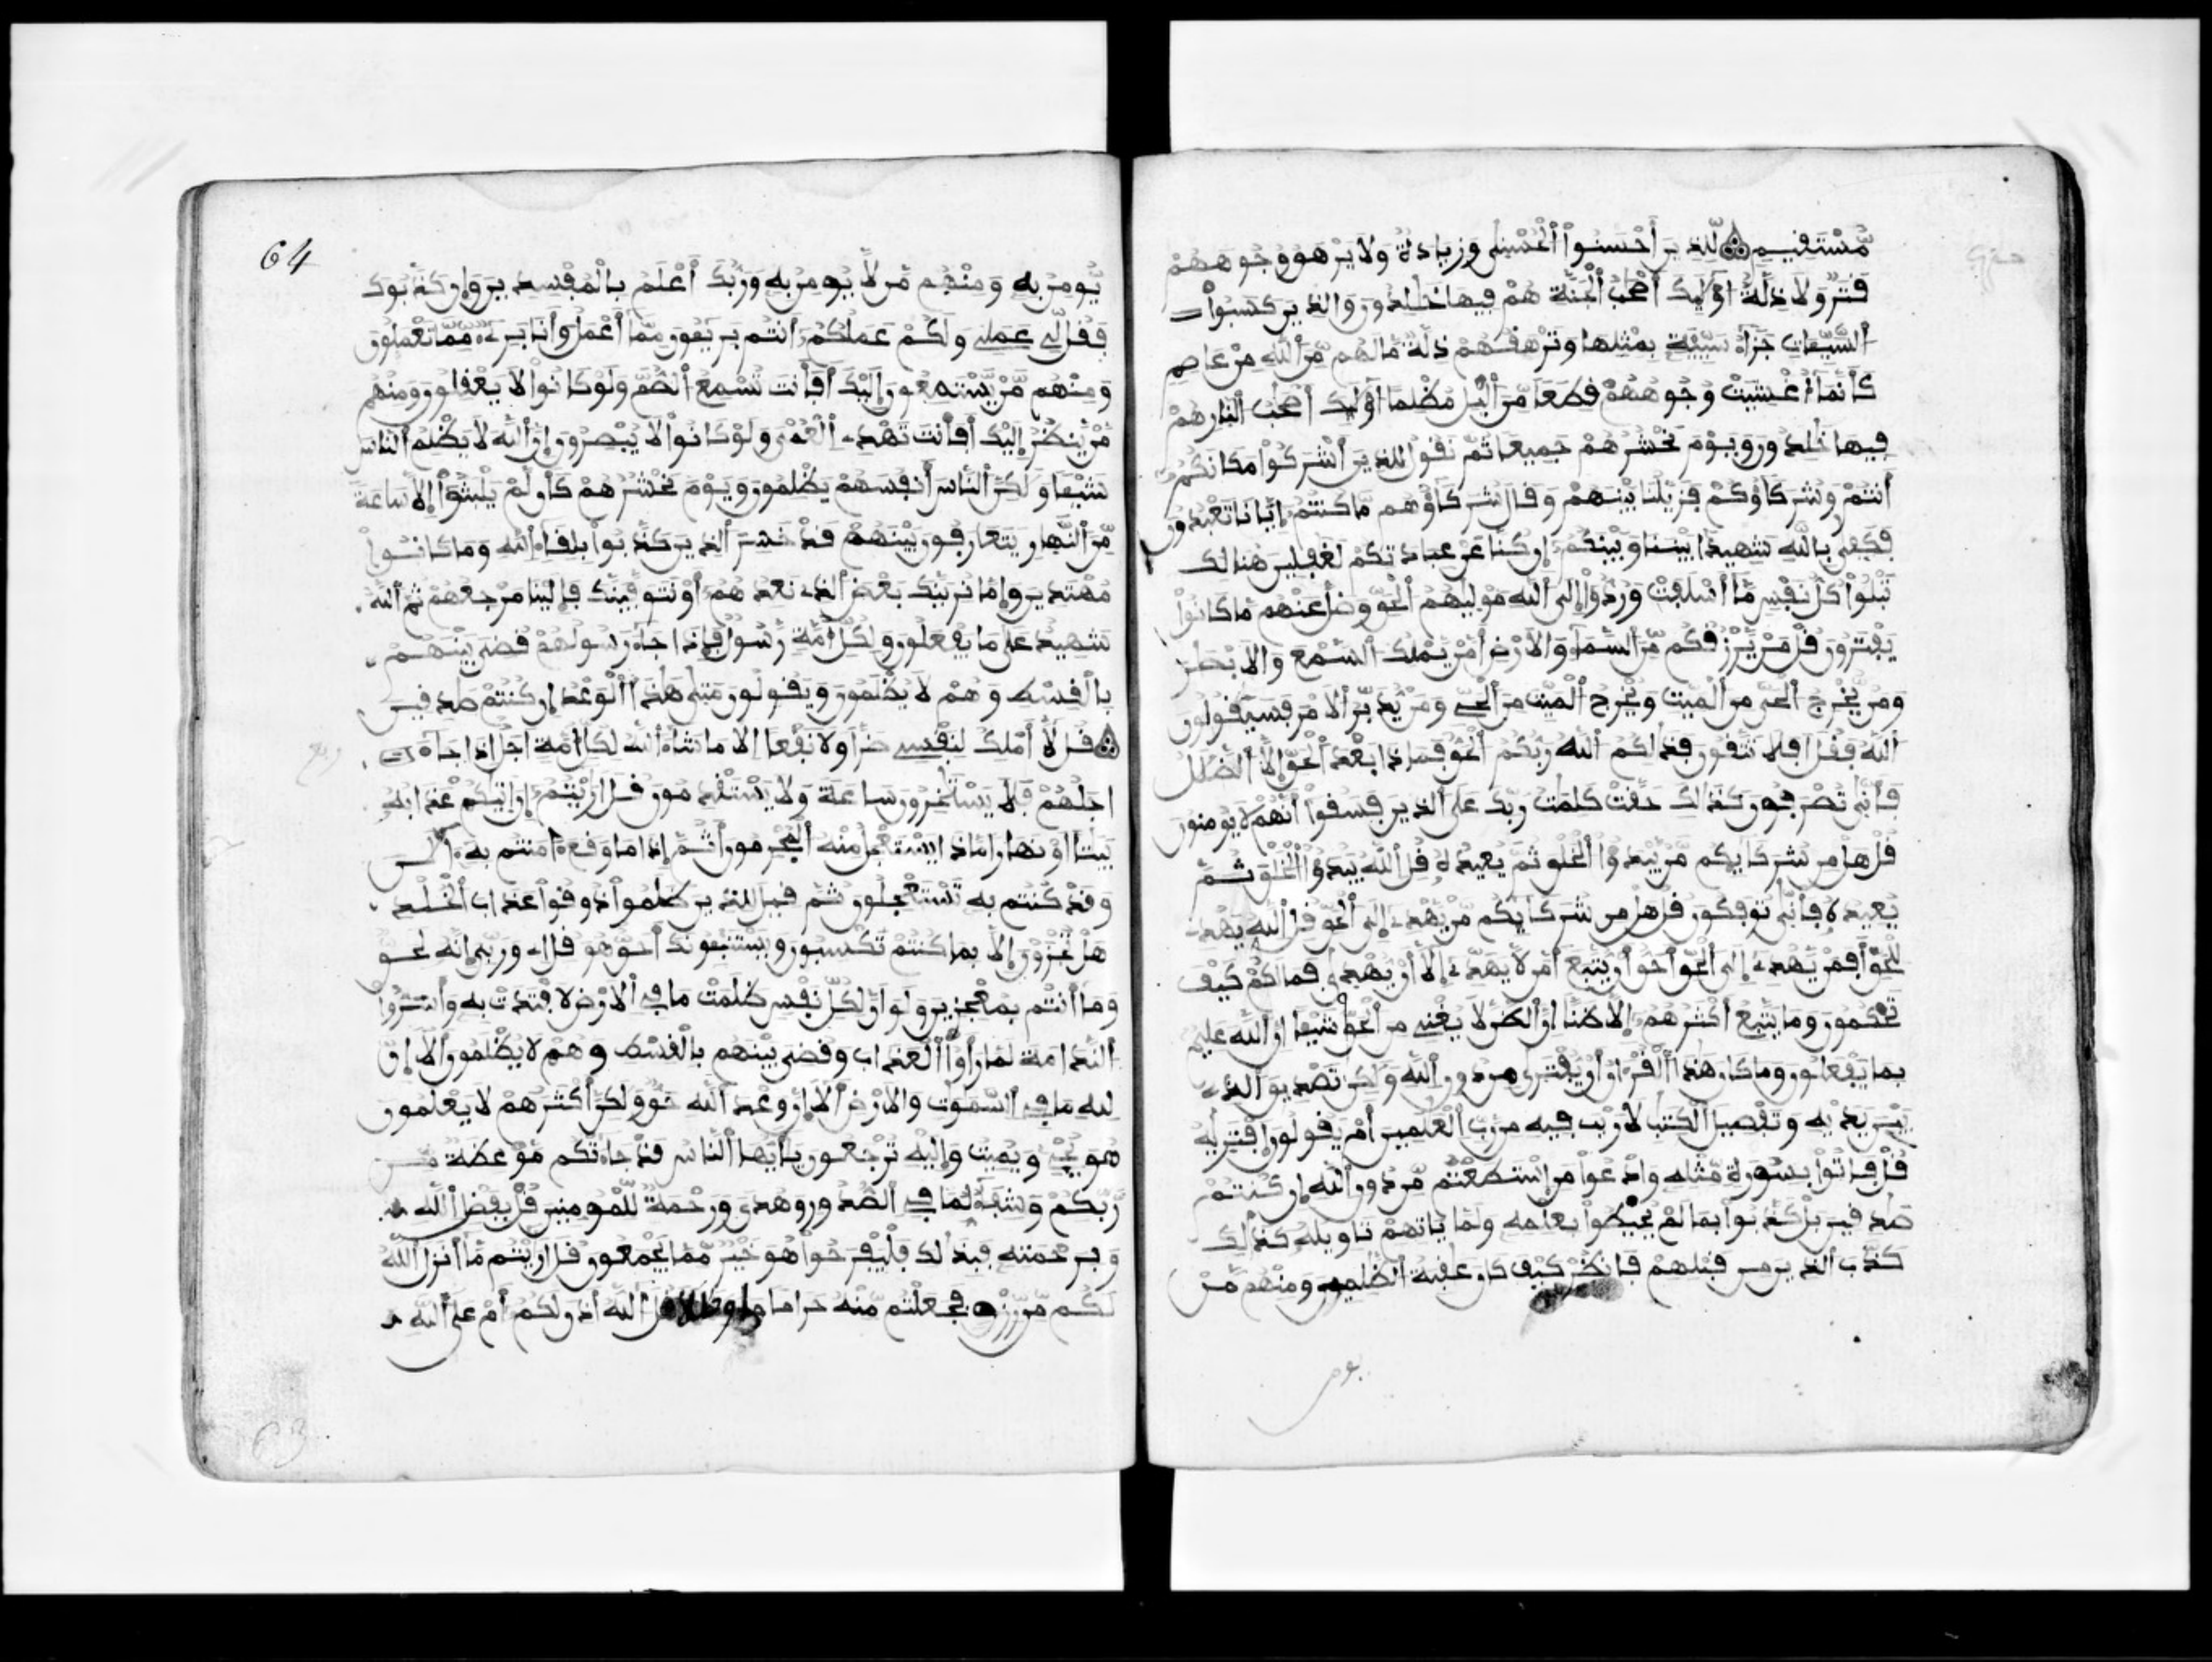 مُّسْتَقِيمٍ لِّلذِينَ أَحْسَنُواْ الْحُسْنى وَزِيَادَةٌ وَلاَ يَرْهَقُ وُجُوهَهُمْ
قَتَرٌ وَلاَ ذِلَّةٌ اوْلَٰٓئِكَ أَصْحَٰبُ الْجَنَّةِ هُمْ فِيهَا خَٰلِدُونَ وَالذِينَ كَسَبُواْ
السَّيِّـَٔاتِ جَزَآءُ سَيِّئَةٍ بِمِثْلِهَا وَتَرْهَقُهُمْ ذِلَّةٌ مَّا لَهُم مِّنَ اللَّهِ مِنْ عَاصِمٍ
كَأَنَّمَآ أُغْشِيَتْ وُجُوهُهُمْ قِطَعاً مِّنَ اليْلِ مُظْلِماً اوْلَٰٓئِكَ أَصْحَٰبُ النّارِ هُمْ
فِيهَا خَٰلِدُونَ وَيَوْمَ نَحْشُرُهُمْ جَمِيعاً ثُمَّ نَقُولُ لِلذِينَ أَشْرَكُواْ مَكَانَكُمُ
أَنتُمْ وَشُرَكَآؤُكُمْ فَزَيَّلْنَا بَيْنَهُمْ وَقَالَ شُرَكَآؤُهُم مَّا كُنتُمُ إِيَّانَا تَعْبُدُونَ
فَكَفى بِاللَّهِ شَهِيداً بَيْنَنَا وَبَيْنَكُمُ إِن كُنَّا عَنْ عِبَادَتِكُمْ لَغَٰفِلِينَ هُنَالِكَ
تَبْلُواْ كُلُّ نَفْسٍ مَّآ أَسْلَفَتْ وَرُدُّوٓاْ إِلَى اللَّهِ مَوْلَيٰهُمُ الْحَقِّ وَضَلَّ عَنْهُم مَّا كَانُواْ
يَفْتَرُونَ قُلْ مَنْ يَّرْزُقُكُم مِّنَ السَّمَآءِ وَالاَرْضِ أَمَّنْ يَّمْلِكُ السَّمْعَ وَالاَبْصَٰرَ
وَمَنْ يُّخْرِجُ الْحَىَّ مِنَ الْمَيِّتِ وَيُخْرِجُ الْمَيِّتَ مِنَ الْحَىِّ وَمَنْ يُّدَبِّرُ الاَمْرَ فَسَيَقُولُونَ
اللَّهُ فَقُلَ اَفَلاَ تَتَّقُونَ فَذَٰلِكُمُ اللَّهُ رَبُّكُمُ الْحَقُّ فَمَاذَا بَعْدَ الْحَقِّ إِلاَّ الضَّلَٰلُ
فَأَنّى تُصْرَفُونَ كَذَٰلِكَ حَقَّتْ كَلِمَٰتُ رَبِّكَ عَلَى الذِينَ فَسَقُوٓاْ أَنَّهُمْ لاَ يُومِنُونَ
قُلْ هَلْ مِن شُرَكَآئِكُم مَّنْ يَّبْدَؤُاْ الْخَلْقَ ثُمَّ يُعِيدُهُ قُلِ اللَّهُ يَبْدَؤُاْ الْخَلْقَ ثُمَّ
يُعِيدُهُ فَأَنّى تُوفَكُونَ قُلْ هَلْ مِن شُرَكَآئِكُم مَّنْ يَّهْدِىٓ إِلَى الْحَقِّ قُلِ اللَّهُ يَهْدِى
لِلْحَقِّ أَفَمَنْ يَّهْدِىٓ إِلَى الْحَقِّ أَحَقُّ أَنْ يُّتَّبَعَ أَمَّن لاَّ يَهَدِّىٓ إِلآَّ أَنْ يُّهْدى فَمَا لَكُمْ كَيْفَ
تَحْكُمُونَ وَمَا يَتَّبِعُ أَكْثَرُهُمُ إِلاَّ ظَنّاً اِنَّ الظَّنَّ لاَ يُغْنِى مِنَ الْحَقِّ شَيْـٔاً اِنَّ اللَّهَ عَلِيمٌ
بِمَا يَفْعَلُونَ وَمَا كَانَ هَٰذَا الْقُرْءَانُ أَنْ يُّفْتَرى مِن دُونِ اللَّهِ وَلَٰكِن تَصْدِيقَ الذِى
بَيْنَ يَدَيْهِ وَتَفْصِيلَ الْكِتَٰبِ لاَ رَيْبَ فِيهِ مِن رَّبِّ الْعَٰلَمِينَ أَمْ يَقُولُونَ اَفْتَرَيٰهُ
قُلْ فَاتُواْ بِسُورَةٍ مِّثْلِهِ وَادْعُواْ مَنِ اِسْتَطَعْتُم مِّن دُونِ اللَّهِ إِن كُنتُمْ
صَٰدِقِينَ بَلْ كَذَّبُواْ بِمَا لَمْ يُحِيطُواْ بِعِلْمِهِ وَلَمَّا يَاتِهِمْ تَاوِيلُهُ كَذَٰلِكَ
كَذَّبَ الذِينَ مِن قَبْلِهِمْ فَانظُرْ كَيْفَ كَانَ عَٰقِبَةُ الظَّٰلِمِينَ وَمِنْهُم مَّنْ
64
يُّومِنُ بِهِ وَمِنْهُم مَّن لاَّ يُومِنُ بِهِ وَرَبُّكَ أَعْلَمُ بِالْمُفْسِدِينَ وَإِن كَذَّبُوكَ
فَقُل لِّى عَمَلِى وَلَكُمْ عَمَلُكُمُ أَنتُم بَرِيٓـُٔونَ مِمَّآ أَعْمَلُ وَأَنَا بَرِىٓءٌ مِّمَّا تَعْمَلُونَ
وَمِنْهُم مَّنْ يَّسْتَمِعُونَ إِلَيْكَ أَفَأَنتَ تُسْمِعُ الصُّمَّ وَلَوْ كَانُواْ لاَ يَعْقِلُونَ وَمِنْهُم
مَّنْ يَّنظُرُ إِلَيْكَ أَفَأَنتَ تَهْدِى الْعُمْىَ وَلَوْ كَانُواْ لاَ يُبْصِرُونَ إِنَّ اللَّهَ لاَ يَظْلِمُ النَّاسَ
شَيْـٔاً وَلَٰكِنَّ النَّاسَ أَنفُسَهُمْ يَظْلِمُونَ وَيَوْمَ نَحْشُرُهُمْ كَأَن لَّمْ يَلْبَثُوٓاْ إِلاَّ سَاعَةً
مِّنَ النَّهَارِ يَتَعَارَفُونَ بَيْنَهُمْ قَدْ خَسِرَ الذِينَ كَذَّبُواْ بِلِقَآءِ اللَّهِ وَمَا كَانُواْ
مُهْتَدِينَ وَإِمَّا نُرِيَنَّكَ بَعْضَ الذِى نَعِدُهُمُ أَوْ نَتَوَفَّيَنَّكَ فَإِلَيْنَا مَرْجِعُهُمْ ثُمَّ اللَّهُ
شَهِيدٌ عَلَى مَا يَفْعَلُونَ وَلِكُلِّ أُمَّةٍ رَّسُولٌ فَإِذَا جَآءَ رَسُولُهُمْ قُضِىَ بَيْنَهُم
بِالْقِسْطِ وَهُمْ لاَ يُظْلَمُونَ وَيَقُولُونَ مَتى هَٰذَا الْوَعْدُ إِن كُنتُمْ صَٰدِقِينَ
قُل لآَّ أَمْلِكُ لِنَفْسِى ضَرّاً وَلاَ نَفْعاً اِلاَّ مَا شَآءَ اللَّهُ لِكُلِّ أُمَّةٍ اَجَلٌ اِذَا جَآءَ
اجَلُهُمْ فَلاَ يَسْتَـٔخِرُونَ سَاعَةً وَلاَ يَسْتَقْدِمُونَ قُلَ اَرَٰيْتُمُ إِنَ اَتَيٰكُمْ عَذَابُهُ
بَيَٰتاً اَوْ نَهَاراً مَّاذَا يَسْتَعْجِلُ مِنْهُ الْمُجْرِمُونَ أَثُمَّ إِذَا مَا وَقَعَ ءَامَنتُم بِهِ ءَآلَٰنَ
وَقَدْ كُنتُم بِهِ تَسْتَعْجِلُونَ ثُمَّ قِيلَ لِلذِينَ ظَلَمُواْ ذُوقُواْ عَذَابَ الْخُلْدِ
هَلْ تُجْزَوْنَ إِلاَّ بِمَا كُنتُمْ تَكْسِبُونَ وَيَسْتَنۢبِـُٔونَكَ أَحَقٌّ هُوَ قُلِ اِى وَرَبِّىَ إِنَّهُ لَحَقٌّ
وَمَآ أَنتُم بِمُعْجِزِينَ وَلَوَ اَنَّ لِكُلِّ نَفْسٍ ظَلَمَتْ مَا فِى الاَرْضِ لاَفْتَدَتْ بِهِ وَأَسَرُّواْ
النَّدَامَةَ لَمَّا رَأَوُاْ الْعَذَابَ وَقُضِىَ بَيْنَهُم بِالْقِسْطِ وَهُمْ لاَ يُظْلَمُونَ أَلآَ إِنَّ
لِلهِ مَا فِى السَّمَٰوَٰتِ وَالاَرْضِ أَلآَ إِنَّ وَعْدَ اللَّهِ حَقٌّ وَلَٰكِنَّ أَكْثَرَهُمْ لاَ يَعْلَمُونَ
هُوَ يُحْىِ وَيُمِيتُ وَإِلَيْهِ تُرْجَعُونَ يَٰٓأَيُّهَا النَّاسُ قَدْ جَآءَتْكُم مَّوْعِظَةٌ مِّن
رَّبِّكُمْ وَشِفَآءٌ لِّمَا فِى الصُّدُورِ وَهُدىً وَرَحْمَةٌ لِّلْمُومِنِينَ قُلْ بِفَضْلِ اللَّهِ
وَبِرَحْمَتِهِ فَبِذَٰلِكَ فَلْيَفْرَحُواْ هُوَ خَيْرٌ مِّمَّا يَجْمَعُونَ قُلَ اَرَٰيْتُم مَّآ أَنزَلَ اللَّهُ
لَكُم مِّن رِّزْقٍ فَجَعَلْتُم مِّنْهُ حَرَاماً وَحَلَٰلاً قُلَ اللَّهُ أَذِنَ لَكُمُ أَمْ عَلَى اللَّهِ